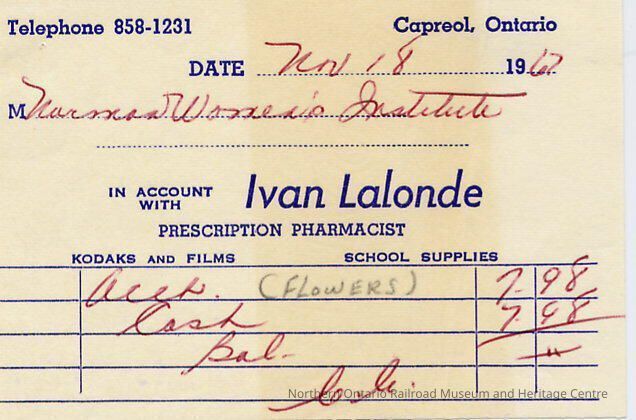 Telephone 858-1231 Capreol, Ontario
DATE Nov 18 1962
M Norman Women's Institute
IN ACCOUNT WITH Ivan Lalonde
PRESCRIPTION PHARMACIST
KODAKS AND FILMS SCHOOL SUPPLIES
Acct. (FLOWERS) 7.98
Cash 7.98
Bal. "
Northern Ontario Railroad Museum and Heritage Centre